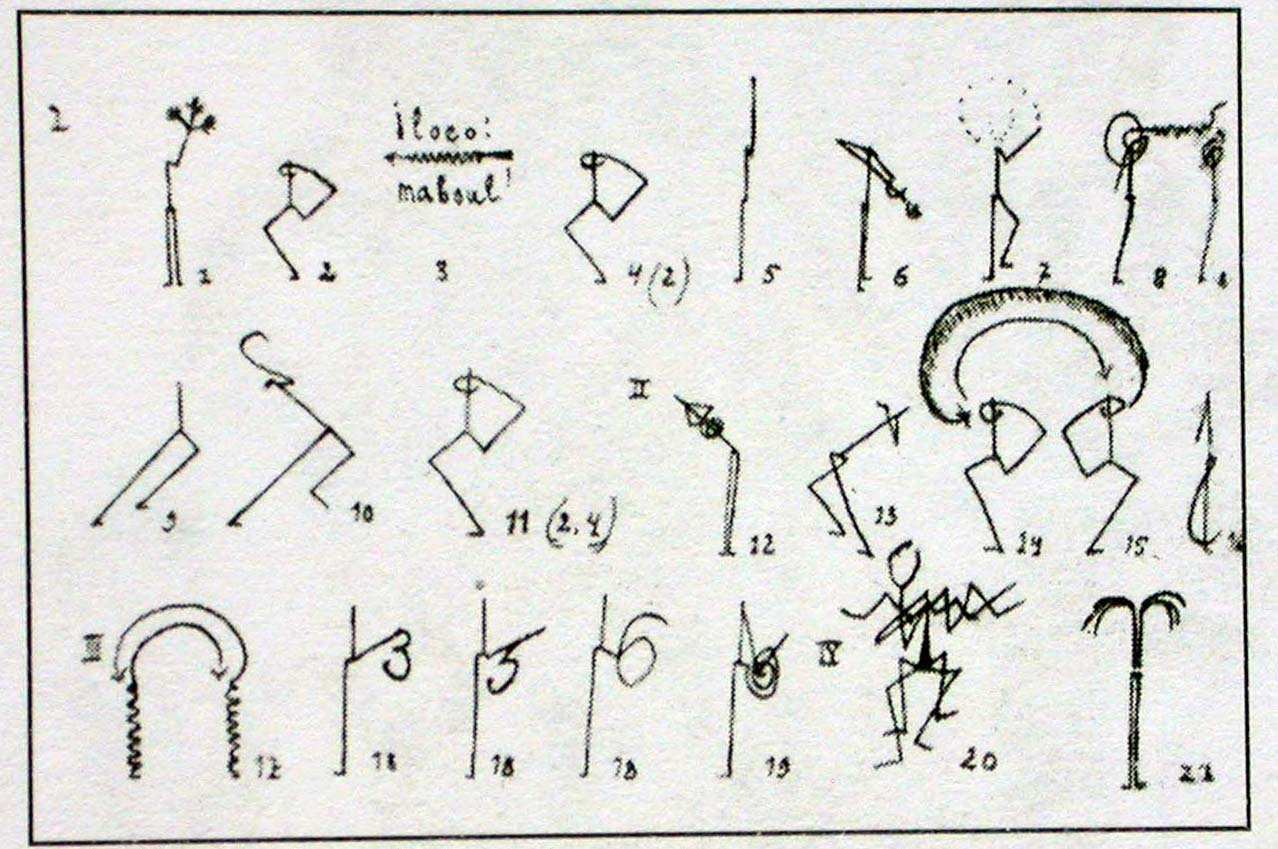 I
¡loco!
maboul!
1 2 3 4 (2) 5 6 7 8
II
9 10 11 (2,4) 12 13 14 15
III IV
17 18 18 18 19 20 21